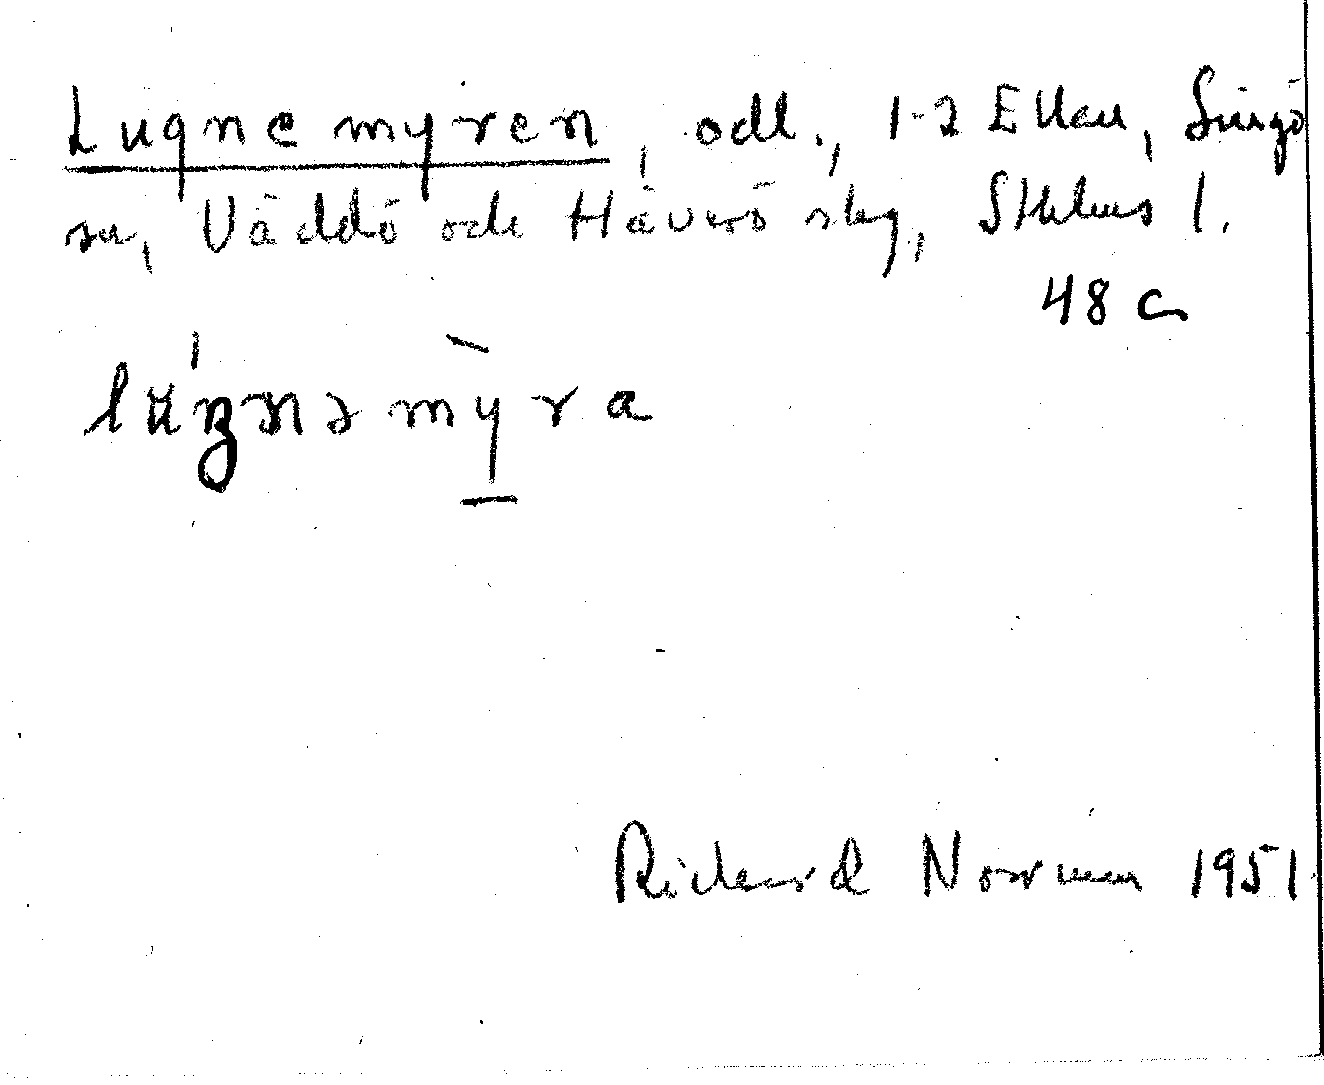 Lugnemyren, odl., 1-2 Ellan, Singö
sn, Väddö och Häverö skg, Sthlms l.
48 c
Richard Norrman 1951